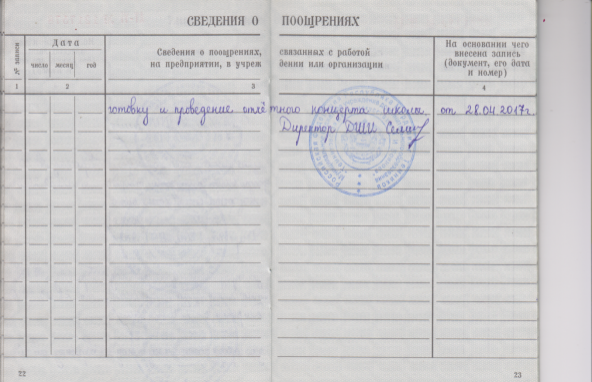 СВЕДЕНИЯ О ПООЩРЕНИЯХ
№ записи
Дата
число месяц год
Сведения о поощрениях, связанных с работой
на предприятии, в учреждении или организации
На основании чего
внесена запись
(документ, его дата
и номер)
1 2 3 4
готовку и проведение отчётного концерта школы. от 28.04.2017г.
Директор ДШИ
22 23